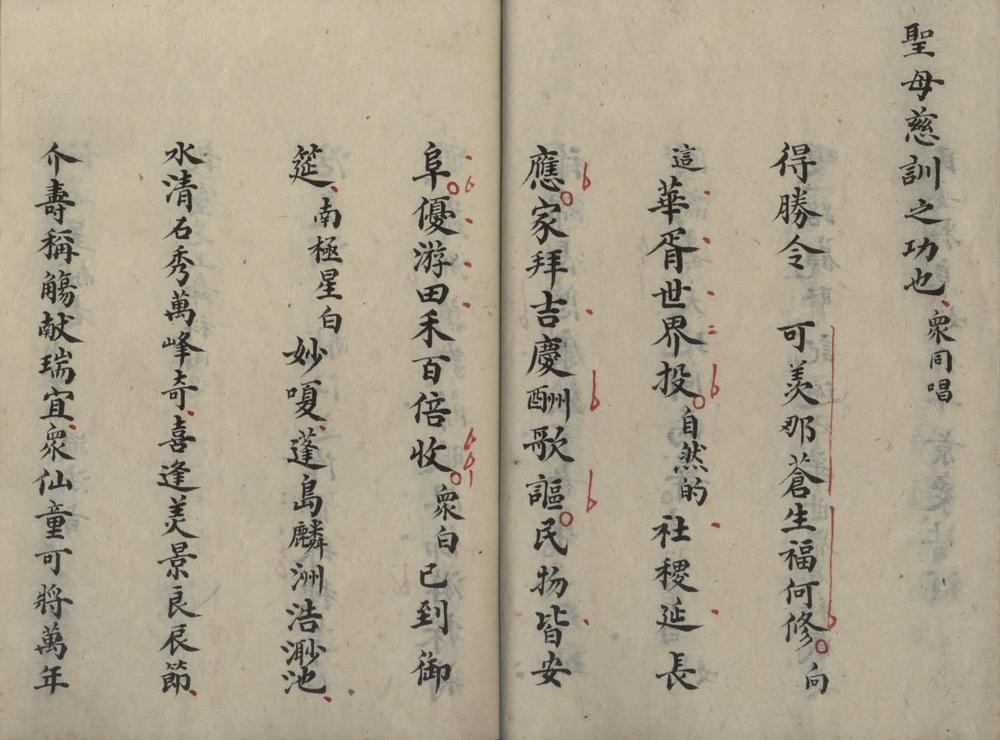 聖母慈訓之功也、衆同唱
得勝令 可羡那蒼生福何修。向
這華胥世界投。自然的社稷延長
應。家拜吉慶酬歌謳。民物皆安
阜。優游田禾百倍收。衆白已到御
筵、南極星白妙嗄、蓬島麟洲浩渺池、
水清石秀萬峰奇、喜逢美景良辰節、
介壽稱觴献瑞宜、衆仙童可將萬年